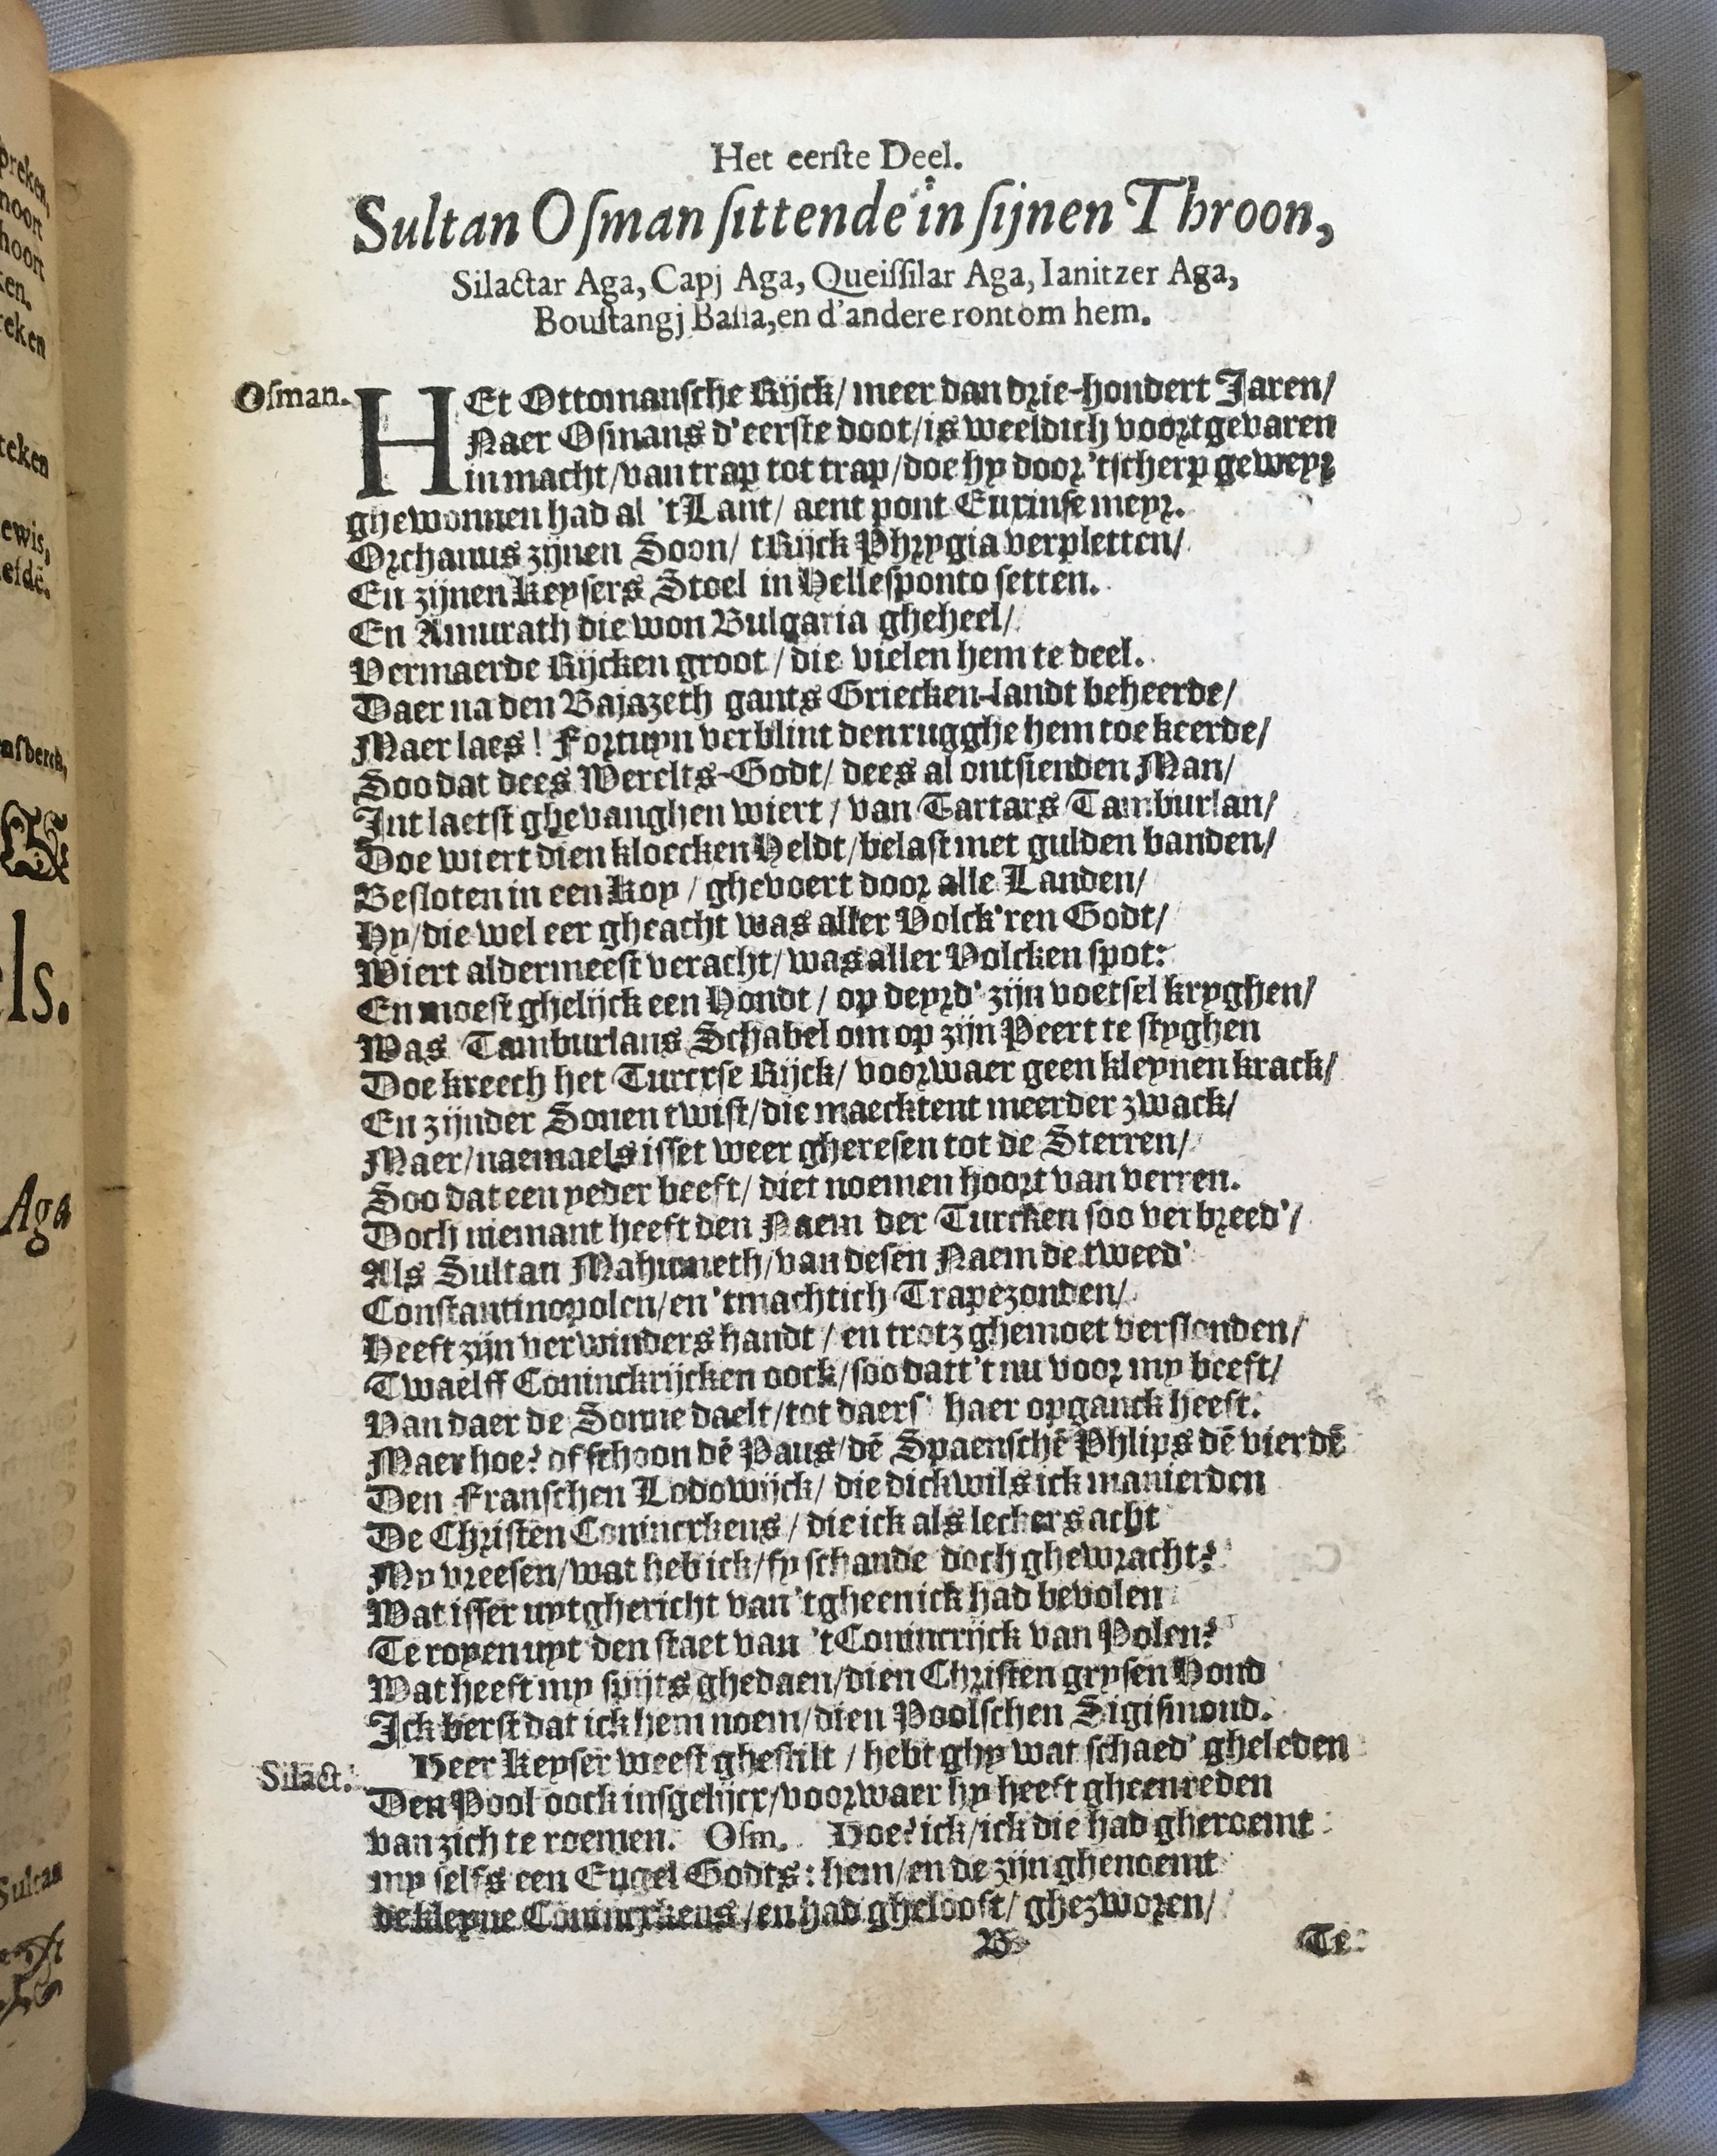 Het eerſte Deel.
Sultan Oſman ſittende in ſijnen Throon,
Silactar Aga, Capj Aga, Queiſſilar Aga, Ianitzer Aga,
Bouſtangj Baſſa, en d'andere rontom hem.
Oſman. HEt Ottomansche Rijck/ meer dan drie-hondert Jaren/
Naer Osmans d'eerste doot/ is weeldich voortgevaren
in macht/ van trap tot trap/ doe hy door 'tscherp geweyr
ghewonnen had al 't Lant/ aent pont Euxinse meyr.
Orchanus zijnen Soon/ tRijck Phrygia verpletten/
En zijnen Keysers Stoel in Hellesponto setten.
En Amurath die won Bulgaria gheheel/
Vermaerde Rijcken groot/ die vielen hem te deel.
Daer na den Bajazeth gants Griecken-landt beheerde/
Maer laes! Fortuyn verblint den rugghe hem toe keerde/
Soo dat dees Werelts-Godt/ dees al ontsienden Man/
Int laetst ghevanghen wiert/ van Tartars Tamburlan/
Doe wiert dien kloecken Heldt/ belast met gulden banden/
Besloten in een Koy/ ghevoert door alle Landen/
Hy/ die wel eer gheacht was aller Volck'ren Godt/
Wiert aldermeest veracht/ was aller Volcken spot:
En moest ghelijck een Hondt/ op d'eyrd' zijn voetsel kryghen/
Was Tamburlans Schabel om op zijn Peert te styghen
Doe kreech het Turcxse Rijck/ voorwaer geen kleynen krack/
En zijnder Sonen twist/ die maecktent meerder zwack/
Maer/ naemaels isset weer gheresen tot de Sterren/
Soo dat een yeder beeft/ diet noemen hoort van verren.
Doch niemant heeft den Naem der Turcken soo verbreed'/
Als Sultan Mahumeth/ van desen Naem de tweed'
Constantinopolen/ en 'tmachtich Trapezonden/
Heeft zijn verwinders handt/ en trotz ghemoet verslonden/
Twaelff Coninckrijcken oock/ soo datt't nu voor my beeft/
Van daer de Sonne daelt/ tot daers' haer opganck heeft.
Maer hoe? of schoon dē Paus/ dē Spaenschē Phlips dē vierdē
Den Franschen Lodowijck/ die dickwils ick manierden
De Christen Coninckens/ die ick als leckers acht
My vreesen/ wat heb ick/ fy schande doch ghewracht?
Wat isser uytghericht van 'tgheen ick had bevolen
Te royen uyt den staet van 't Conincrijck van Polen?
Wat heeft my spijts ghedaen/ dien Christen grysen Hond
Ick berst dat ick hem noem/ dien Poolschen Sigismond.
Silact. Heer Keyser weest ghestilt/ hebt ghy wat schaed' gheleden
Den Pool oock insgelijcx/ voorwaer hy heeft gheen reden
van zich te roemen. Oſm. Hoe? ick/ ick die had gheroemt
my selfs een Engel Godts: hem/ en de zijn ghenoemt
de kleyne Coninckens/ en had ghelooft/ ghezworen/
B Te